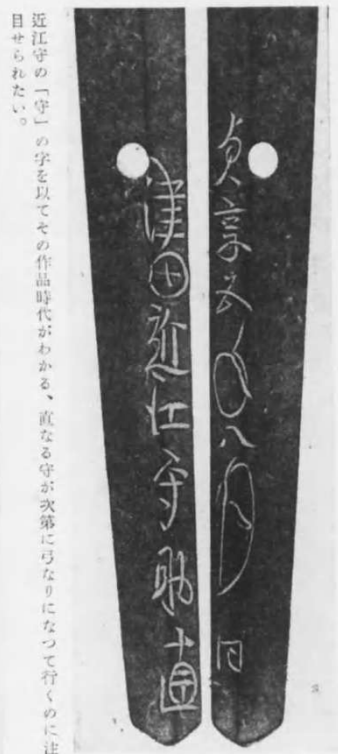 貞享五年八月日
津田近江守助直
近江守の「守」の字を以てその作品時代がわかる、直なる守が次第に弓なりになつて行くのに注
目せられたい。